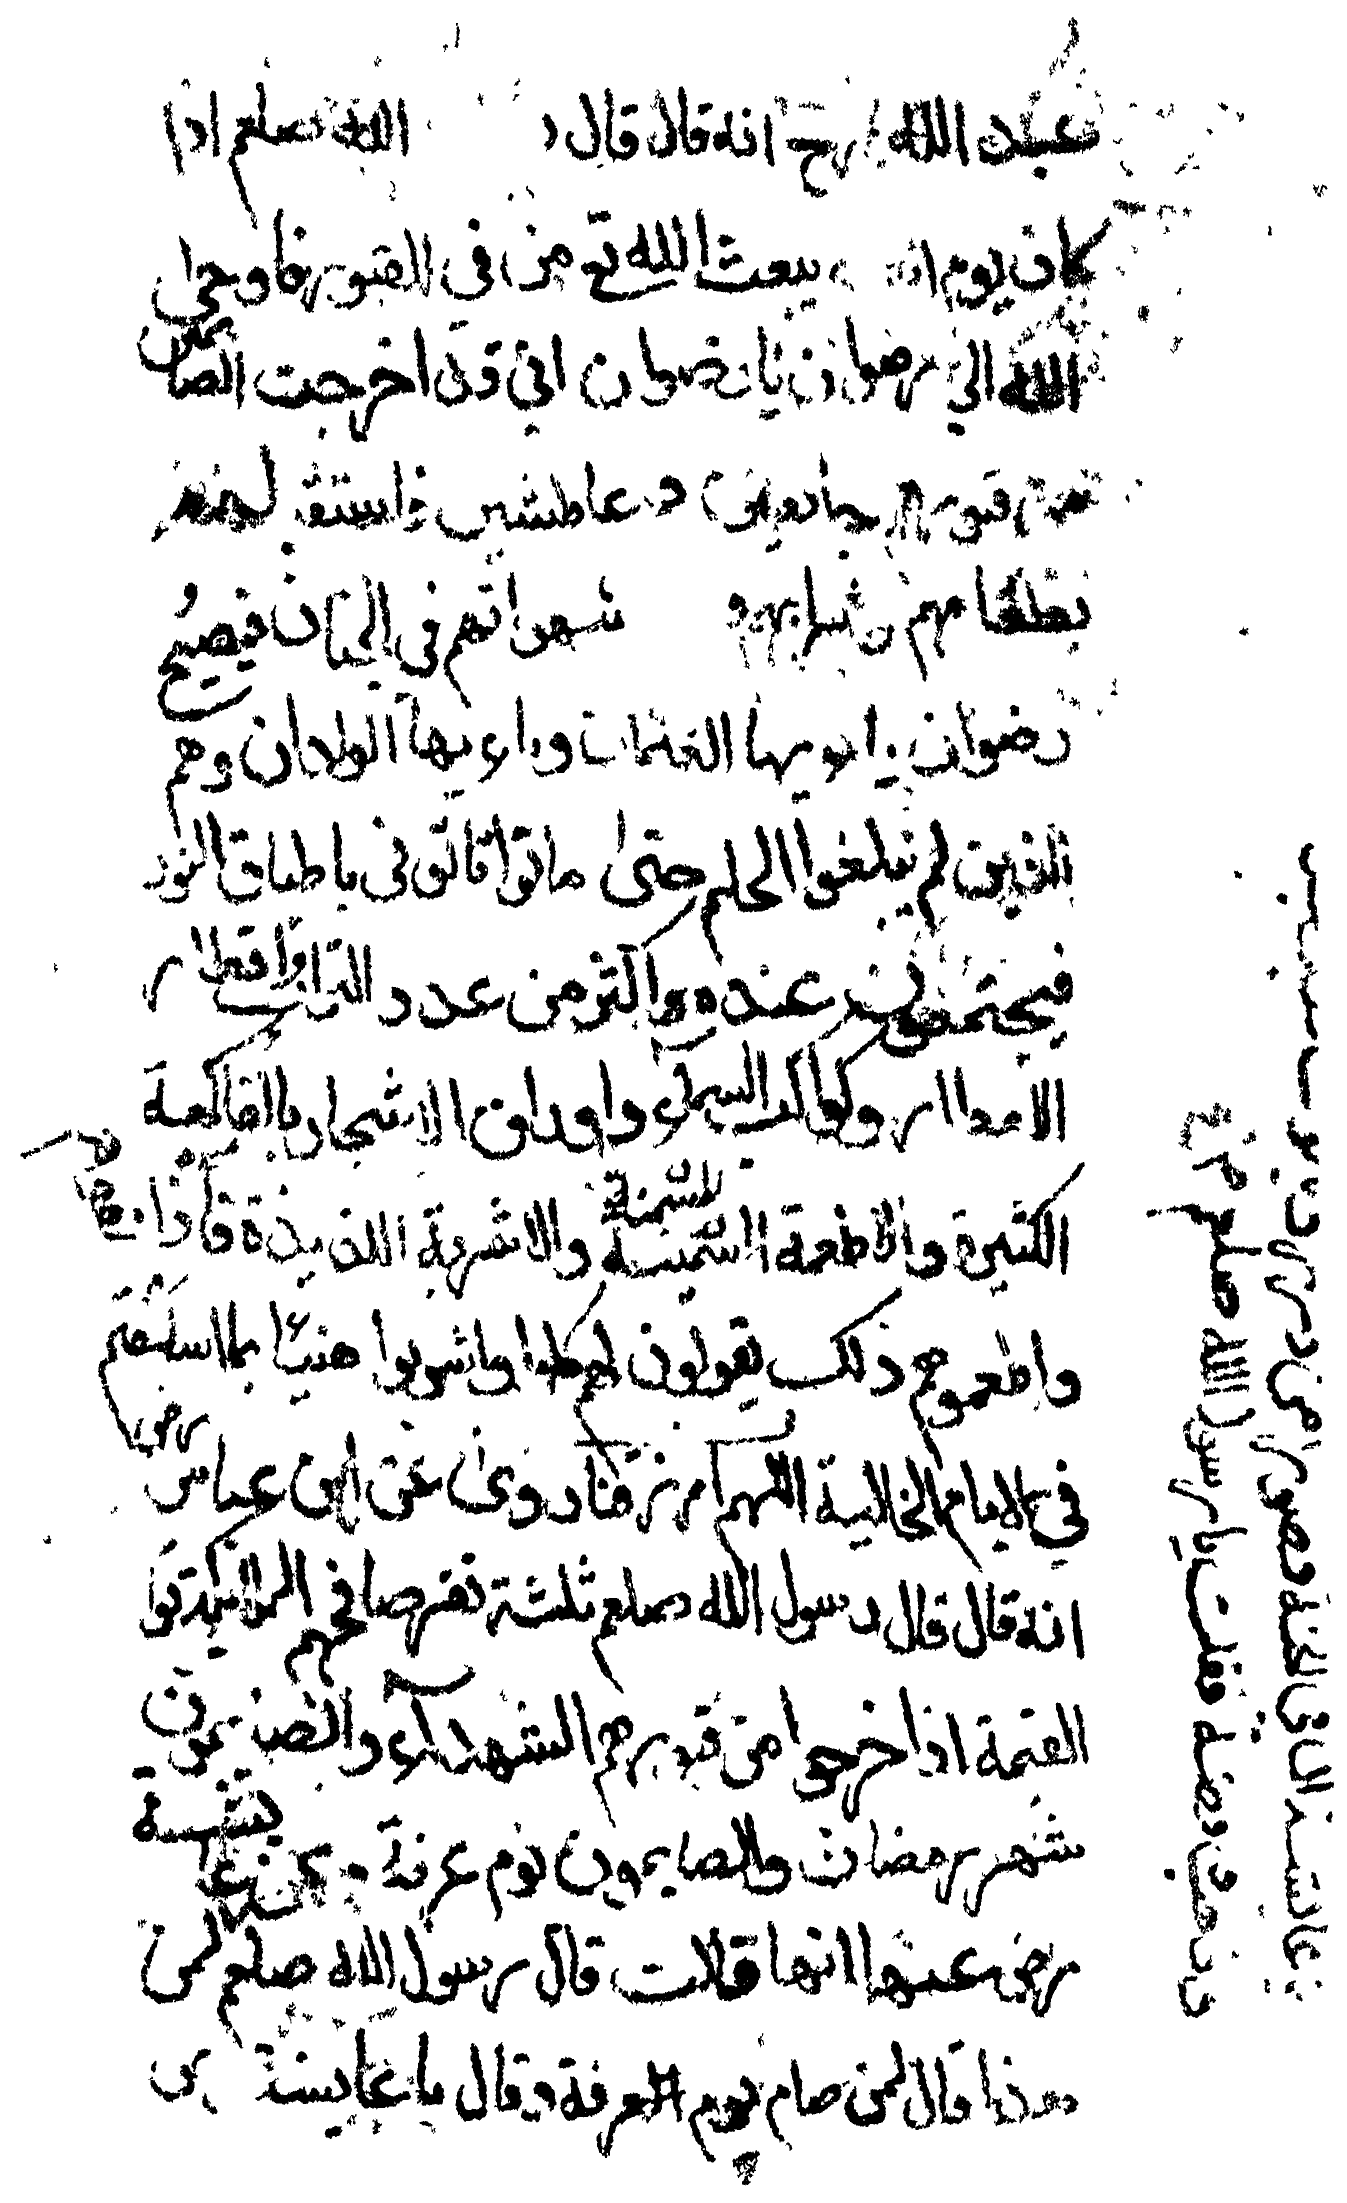 عبد الله انه قال قال ر الله صلعم اذا
كان يوم يبعث الله تع من في القبور فاوحى
الله الى رضوان يا رضوان اني قد اخرجت الصائمين
من قبورهم جايعين عاطشين فاستقبلهم
بطعامهم وشرابهم و شهواتهم في الجنان فيصيح
رضوان ايها الغلمان و ايها الولدان وهم
الذين لم يبلغوا الحلم حتى ماتوا فاتوني باطباق النور
فيجتمعون عنده اكثر من عدد التراب واقطار
الامطار وكواكب السماء واوراق الاشجار بالفاكهة
الكثيرة والاطعمة السمينة والاشربة اللذيذة فاذا
واطعموهم ذلك يقولون لهم كلوا واشربوا هنيئا بما اسلفتم
في الايام الخالية اللهم ارزقنا روى عن ابن عباس رض
انه قال قال رسول الله صلعم ثلثة نفر صافحهم الملائكة يوم
القيمة اذا خرجوا من قبورهم الشهداء والصائمون
شهر رمضان والصايمون يوم عرفة وعن عايشة
رضى عنها انها قالت قال رسول الله صلعم لمن
قال لمن صام يوم العرفة وقال يا عايشة
يا عايشة ان في الجنة قصورا من در
وذهب وفضة فقلت يا رسول الله صلعم